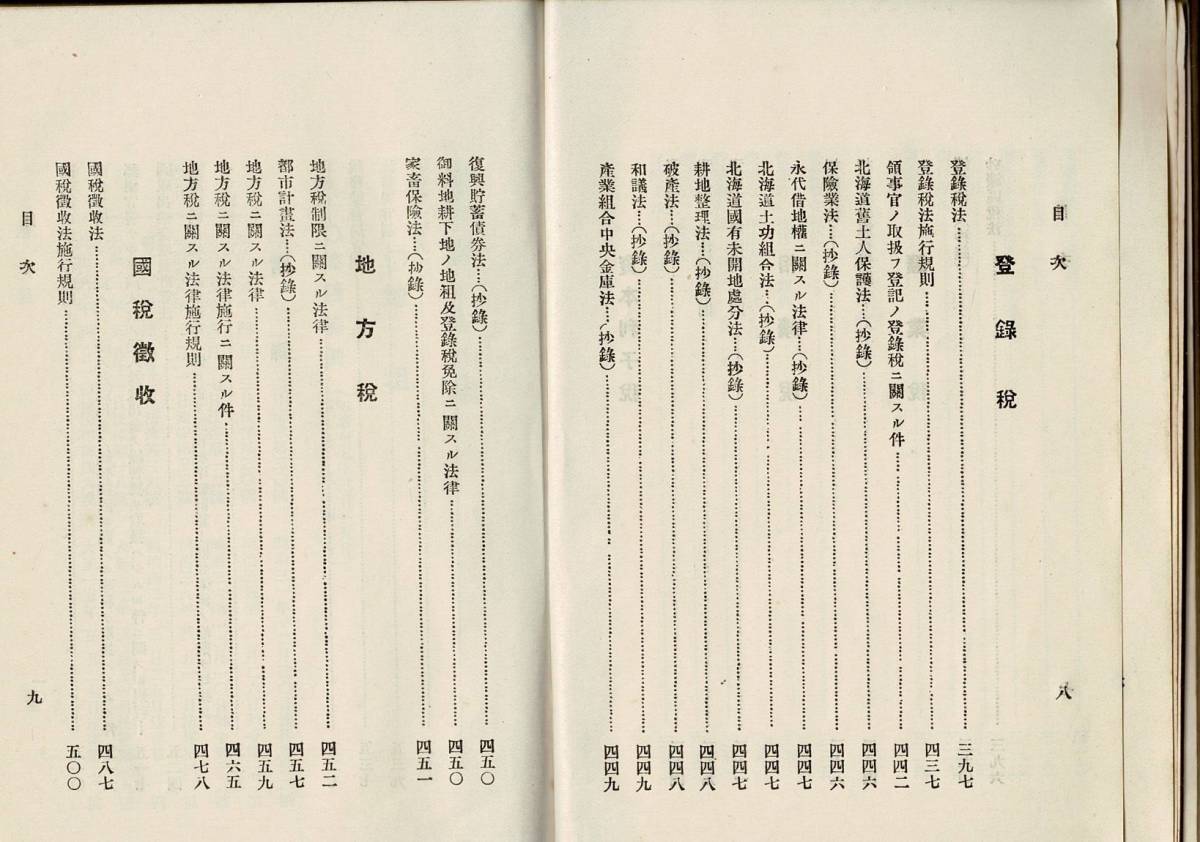 目次
登錄稅
登錄稅法……三九七
登錄稅法施行規則……四三七
領事官ノ取扱フ登記ノ登錄稅ニ關スル件……四四二
北海道舊土人保護法…（抄錄）……四四六
保險業法…（抄錄）……四四六
永代借地權ニ關スル法律…（抄錄）……四四七
北海道土功組合法…（抄錄）……四四七
北海道國有未開地處分法…（抄錄）……四四七
耕地整理法…（抄錄）……四四八
破產法…（抄錄）……四四八
和議法…（抄錄）……四四九
產業組合中央金庫法…（抄錄）……四四九
八
復興貯蓄債券法…（抄錄）……四五〇
御料地耕下地ノ地祖及登錄稅免除ニ關スル法律……四五〇
家畜保險法…（抄錄）……四五一
地方稅
地方稅制限ニ關スル法律……四五二
都市計畫法…（抄錄）……四五七
地方稅ニ關スル法律……四五九
地方稅ニ關スル法律施行ニ關スル件……四六五
地方稅ニ關スル法律施行規則……四七八
國稅徵收
國稅徵收法……四八七
國稅徵收法施行規則……五〇〇
目次
九